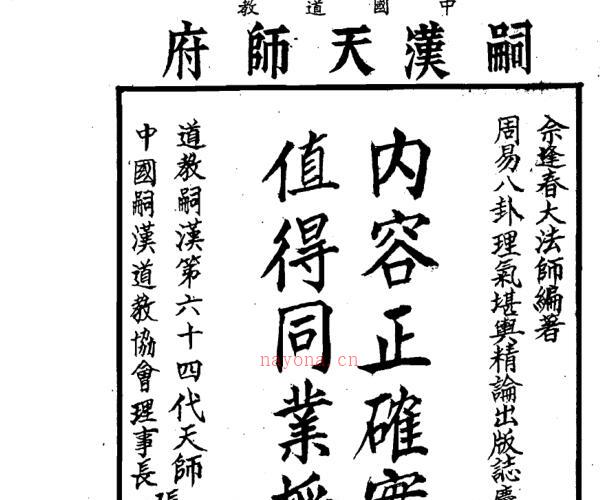 中國道教
嗣漢天師府
佘逢春大法師編著
周易八卦理氣堪輿精論出版誌慶
内容正確實
值得同業
道教嗣漢第六十四代天師
中國嗣漢道教協會理事長
張
nayona.cn